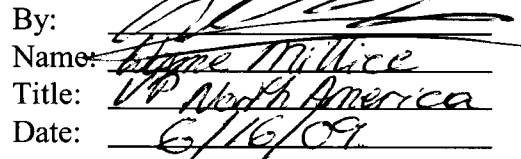 By:
Name: Millice
Title: VP North America
Date: 6/16/09